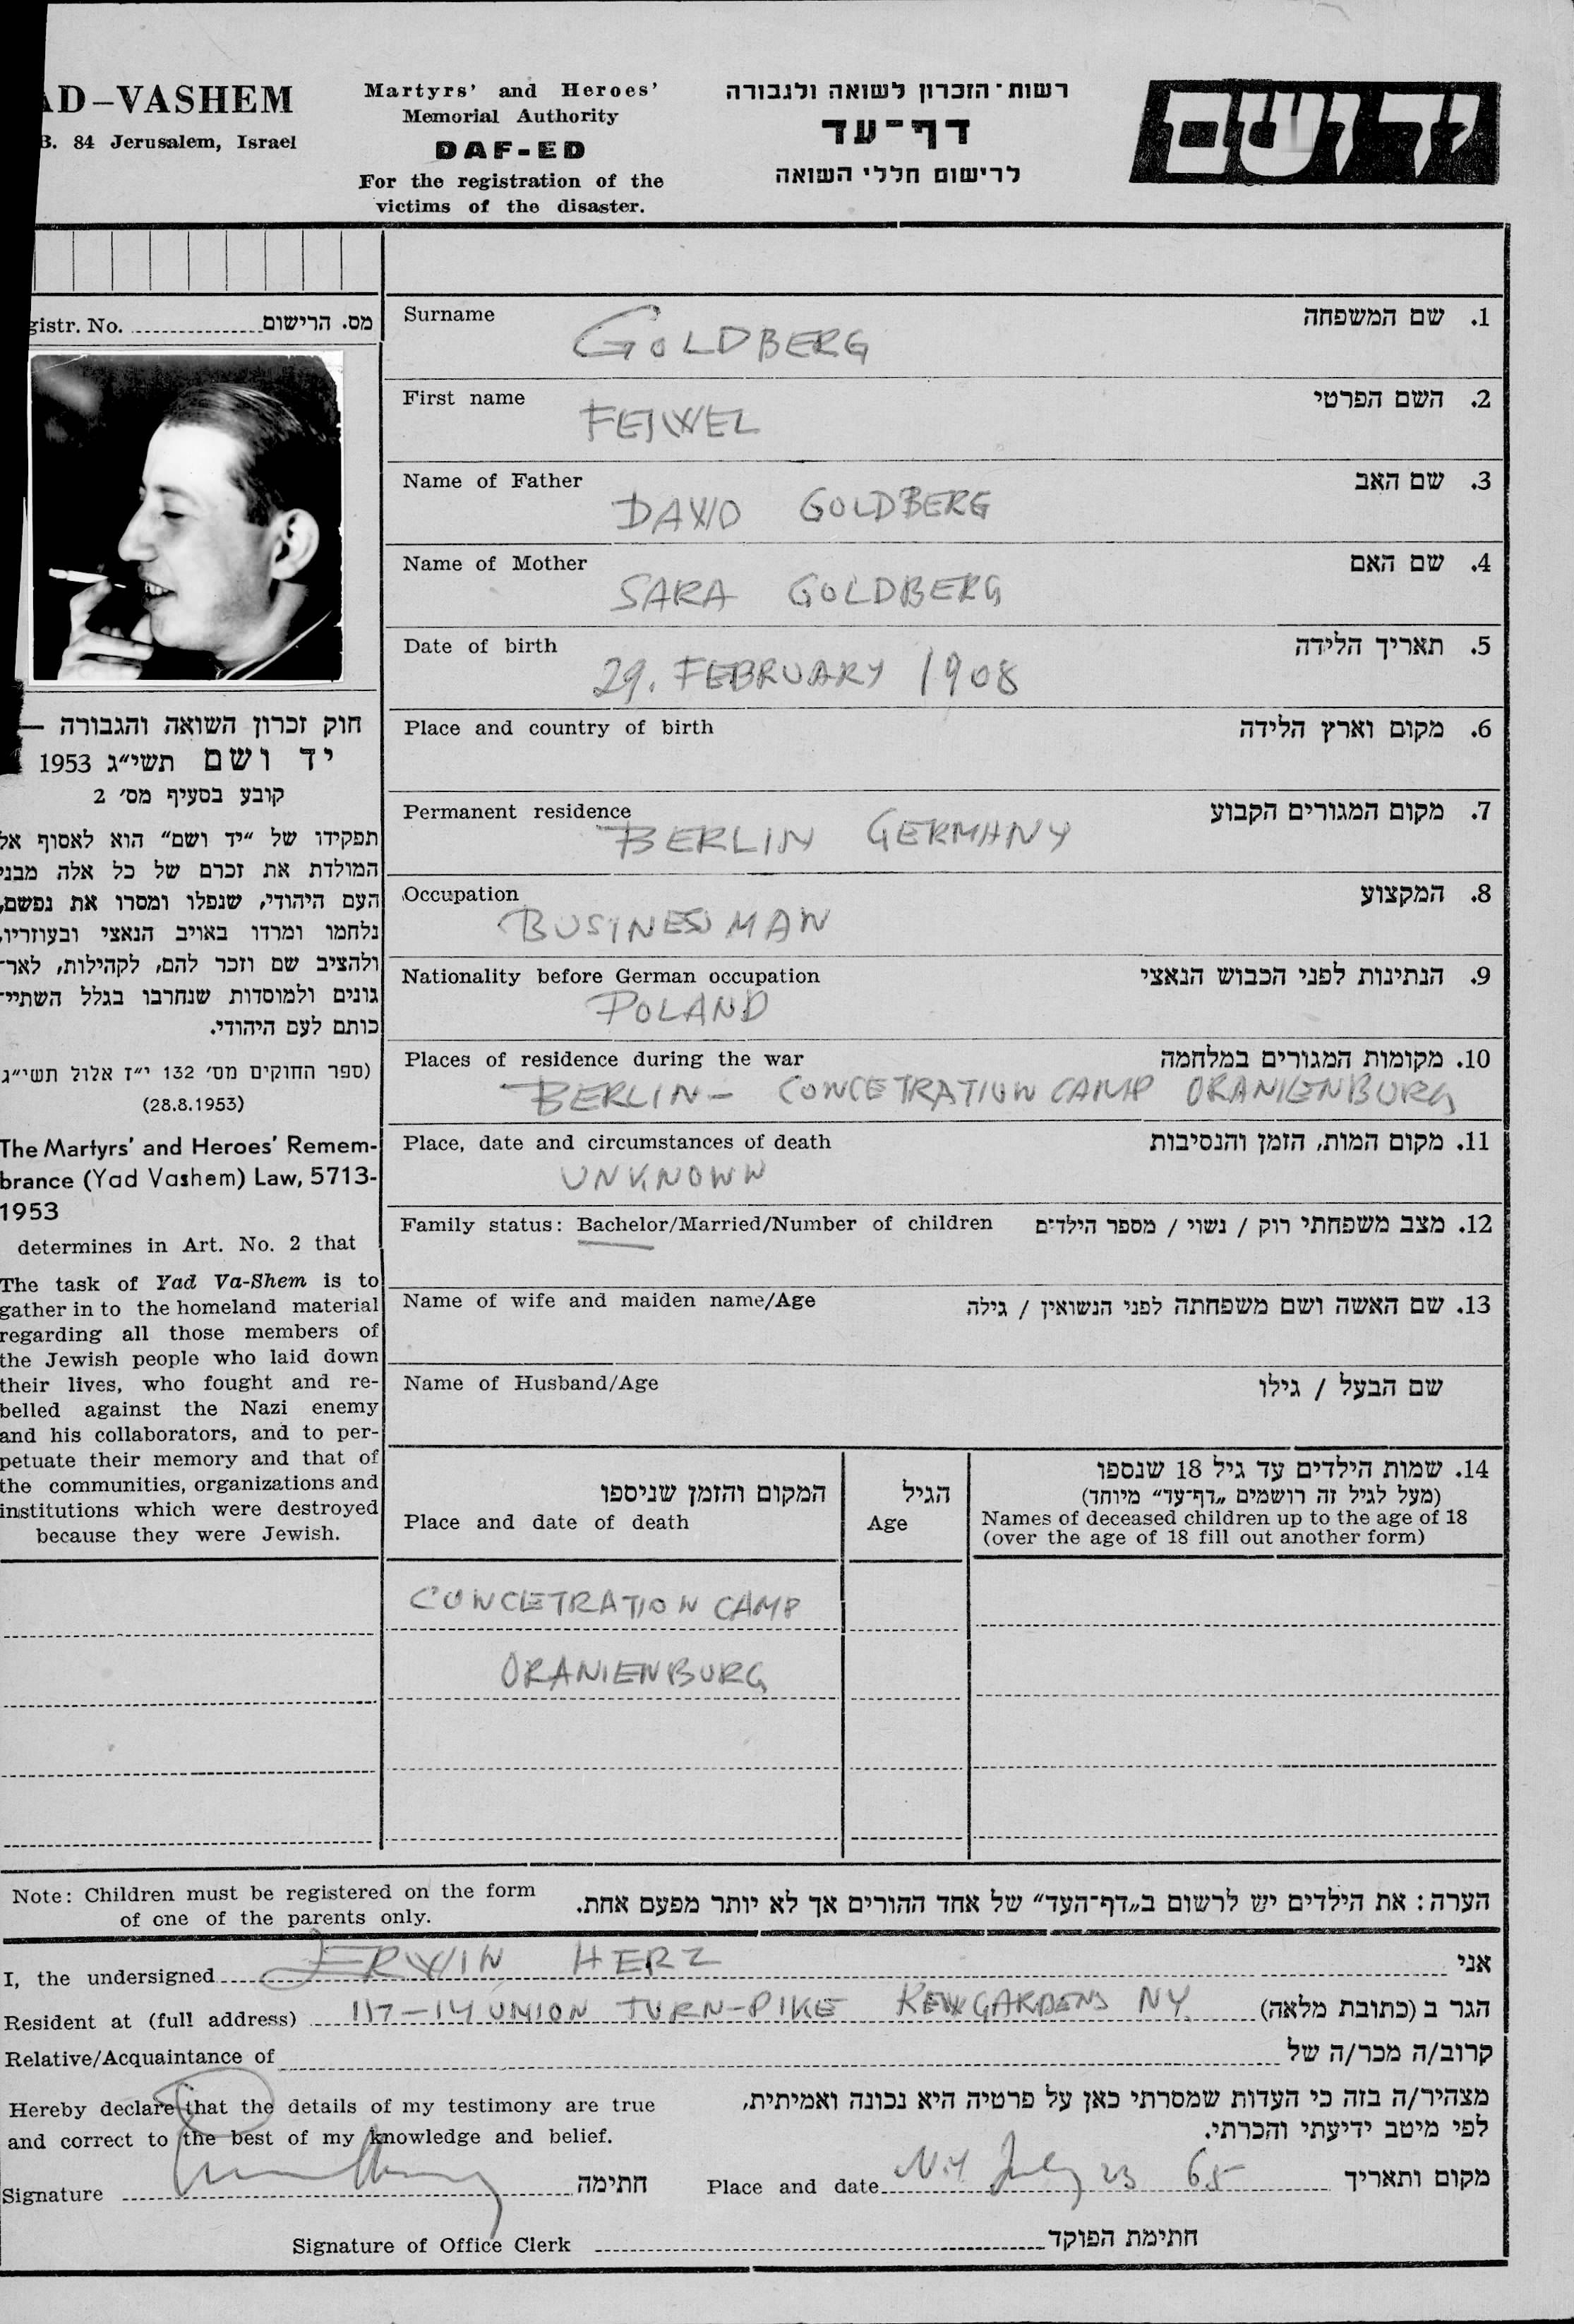 AD-VASHEM
B. 84 Jerusalem, Israel
Martyrs' and Heroes'
Memorial Authority
DAF-ED
For the registration of the
victims of the disaster.
רשות־הזכרון לשואה ולגבורה
דף־עד
לרישום חללי השואה
ידושם
gistr. No. מס. הרישום
חוק זכרון השואה והגבורה —
יד ושם תשי״ג 1953
קובע בסעיף מס׳ 2
תפקידו של "יד ושם" הוא לאסוף אל
המולדת את זכרם של כל אלה מבני
העם היהודי, שנפלו ומסרו את נפשם,
נלחמו ומרדו באויב הנאצי ובעוזריו,
ולהציב שם וזכר להם, לקהילות, לאר־
גונים ולמוסדות שנחרבו בגלל השתיי־
כותם לעם היהודי.
(ספר החוקים מס׳ 132 י״ז אלול תשי״ג
(28.8.1953)
The Martyrs' and Heroes' Remem-
brance (Yad Vashem) Law, 5713-
1953
determines in Art. No. 2 that
The task of Yad Va-Shem is to
gather in to the homeland material
regarding all those members of
the Jewish people who laid down
their lives, who fought and re-
belled against the Nazi enemy
and his collaborators, and to per-
petuate their memory and that of
the communities, organizations and
institutions which were destroyed
because they were Jewish.
Surname 1. שם המשפחה
GOLDBERG
First name 2. השם הפרטי
FEIWEL
Name of Father 3. שם האב
DAWID GOLDBERG
Name of Mother 4. שם האם
SARA GOLDBERG
Date of birth 5. תאריך הלידה
29. FEBRUARY 1908
Place and country of birth 6. מקום וארץ הלידה
Permanent residence 7. מקום המגורים הקבוע
BERLIN GERMANY
Occupation 8. המקצוע
BUSINESSMAN
Nationality before German occupation 9. הנתינות לפני הכבוש הנאצי
POLAND
Places of residence during the war 10. מקומות המגורים במלחמה
BERLIN - CONCETRATION CAMP ORANIENBURG
Place, date and circumstances of death 11. מקום המות, הזמן והנסיבות
UNKNOWN
Family status: Bachelor/Married/Number of children 12. מצב משפחתי רוק / נשוי / מספר הילדים
Name of wife and maiden name/Age 13. שם האשה ושם משפחתה לפני הנשואין / גילה
Name of Husband/Age שם הבעל / גילו
14. שמות הילדים עד גיל 18 שנספו
(מעל לגיל זה רושמים "דף־עד" מיוחד)
Names of deceased children up to the age of 18
(over the age of 18 fill out another form)
הגיל
Age
המקום והזמן שניספו
Place and date of death
CONCETRATION CAMP
ORANIENBURG
Note: Children must be registered on the form
of one of the parents only.
הערה: את הילדים יש לרשום ב"דף־העד" של אחד ההורים אך לא יותר מפעם אחת.
I, the undersigned ERWIN HERZ אני
Resident at (full address) 117-14 UNION TURN-PIKE KEW GARDENS NY הגר ב (כתובת מלאה)
Relative/Acquaintance of קרוב/ה מכר/ה של
Hereby declare that the details of my testimony are true
and correct to the best of my knowledge and belief.
מצהיר/ה בזה כי העדות שמסרתי כאן על פרטיה היא נכונה ואמיתית,
לפי מיטב ידיעתי והכרתי.
Signature חתימה
Place and date N.Y July 23 65 מקום ותאריך
Signature of Office Clerk חתימת הפוקד